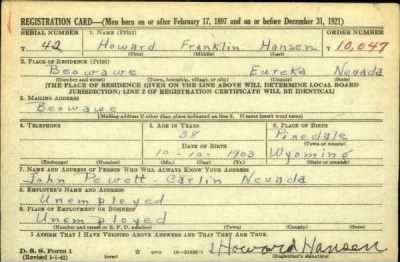 REGISTRATION CARD—(Men born on or after February 17, 1897 and on or before December 31, 1921)
SERIAL NUMBER 1. NAME (Print) ORDER NUMBER
T 42 Howard Franklin Hansen T 10,047
(First) (Middle) (Last)
2. PLACE OF RESIDENCE (Print)
Beowawe Eureka Nevada
(Number and street) (Town, township, village, or city) (County) (State)
[THE PLACE OF RESIDENCE GIVEN ON THE LINE ABOVE WILL DETERMINE LOCAL BOARD
JURISDICTION; LINE 2 OF REGISTRATION CERTIFICATE WILL BE IDENTICAL]
3. MAILING ADDRESS
Beowawe
[Mailing address if other than place indicated on line 2. If same insert word same]
4. TELEPHONE 5. AGE IN YEARS 6. PLACE OF BIRTH
38 Pinedale
DATE OF BIRTH (Town or county)
10-10-1903 Wyoming
(Exchange) (Number) (Mo.) (Day) (Yr.) (State or country)
7. NAME AND ADDRESS OF PERSON WHO WILL ALWAYS KNOW YOUR ADDRESS
John Pewett - Carlin Nevada
8. EMPLOYER'S NAME AND ADDRESS
Unemployed
9. PLACE OF EMPLOYMENT OR BUSINESS
Unemployed
(Number and street or R. F. D. number) (Town) (County) (State)
I AFFIRM THAT I HAVE VERIFIED ABOVE ANSWERS AND THAT THEY ARE TRUE.
D. S. S. Form 1
(Revised 1-1-42) GPO Howard Hansen
(Registrant's signature)